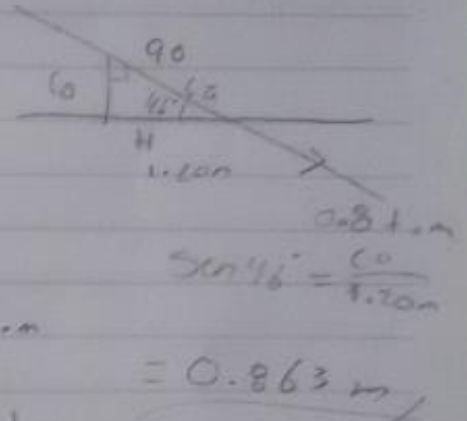 90
Co
46°
H
1.20m
0.8t.m
Sen 46° = CO
1.20m
.m
= 0.863 m